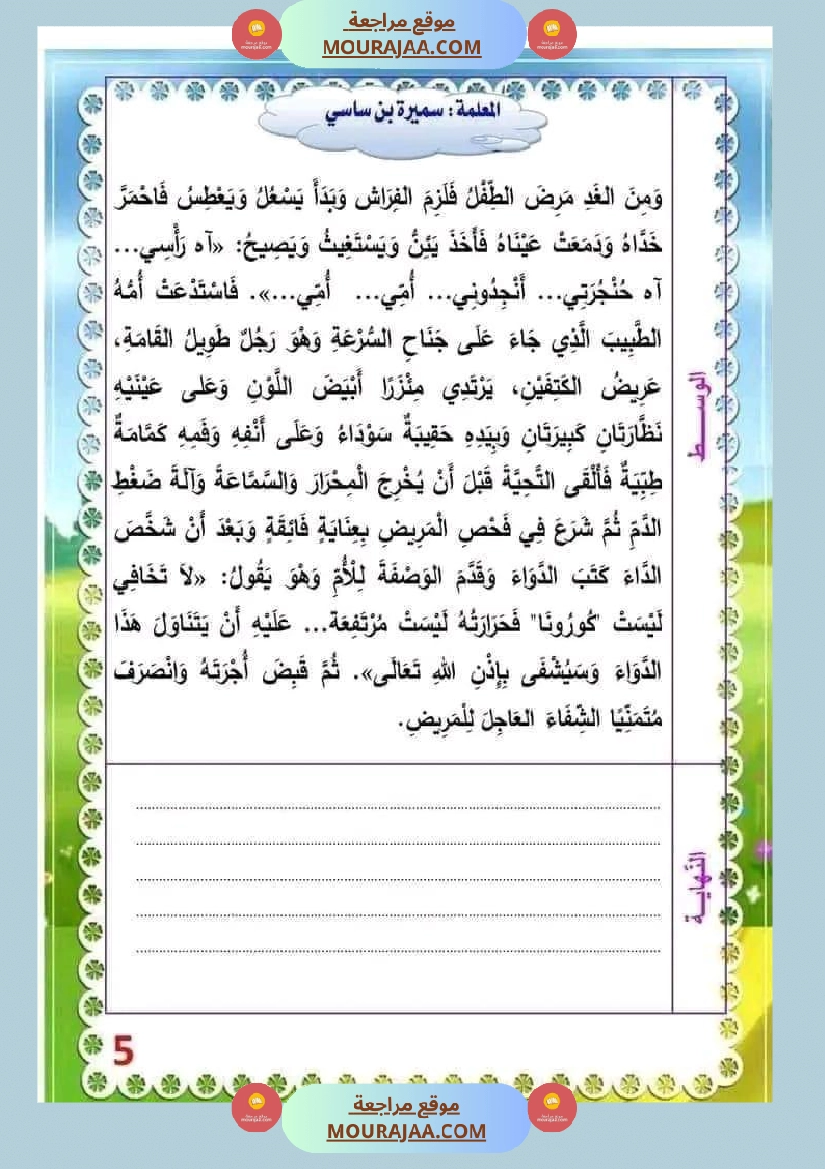 موقع مراجعة
MOURAJAA.COM
المعلمة : سميرة بن ساسي
وَمِنَ الغَدِ مَرِضَ الطِّفْلُ فَلَزِمَ الفِرَاش وَبَدَأَ يَسْعُلُ وَيَعْطِسُ فَاحْمَرَّ
خَدَّاهُ وَدَمَعَتْ عَيْنَاهُ فَأَخَذَ يَئِنُّ وَيَسْتَغِيثُ وَيَصِيحُ: «آه رَأْسِي...
آه حُنْجُرَتِي... أَنْجِدُونِي... أُمِّي... أُمِّي...». فَاسْتَدْعَتْ أُمُّهُ
الطَّبِيبَ الَّذِي جَاءَ عَلَى جَنَاحِ السُّرْعَةِ وَهْوَ رَجُلٌ طَوِيلُ القَامَةِ،
عَرِيضُ الكَتِفَيْنِ، يَرْتَدِي مِئْزَرًا أَبْيَضَ اللَّوْنِ وَعَلى عَيْنَيْهِ
نَظَّارَتَانِ كَبِيرَتَانِ وَبِيَدِهِ حَقِيبَةٌ سَوْدَاءُ وَعَلَى أَنْفِهِ وَفَمِهِ كَمَّامَةٌ
طِبِّيَةٌ فَأَلْقَى التَّحِيَّةَ قَبْلَ أَنْ يُخْرِجَ الْمِحْرَارَ وَالسَّمَّاعَةَ وَآلَةَ ضَغْطِ
الدَّمِّ ثُمَّ شَرَعَ فِي فَحْصِ الْمَرِيضِ بِعِنَايَةٍ فَائِقَةٍ وَبَعْدَ أَنْ شَخَّصَ
الدَّاءَ كَتَبَ الدَّوَاءَ وَقَدَّمَ الوَصْفَةَ لِلْأُمِّ وَهْوَ يَقُولُ: «لاَ تَخَافِي
لَيْسَتْ "كُورُونَا" فَحَرَارَتُهُ لَيْسَتْ مُرْتَفِعَة... عَلَيْهِ أَنْ يَتَنَاوَلَ هَذَا
الدَّوَاءَ وَسَيُشْفَى بِإِذْنِ اللهِ تَعَالَى». ثُمَّ قَبِضَ أُجْرَتَهُ وَانْصَرَفَ
مُتَمَنِّيًا الشِّفَاءَ العَاجِلَ لِلْمَرِيضِ.
الوســـــط
النّهايــة
5
موقع مراجعة
MOURAJAA.COM